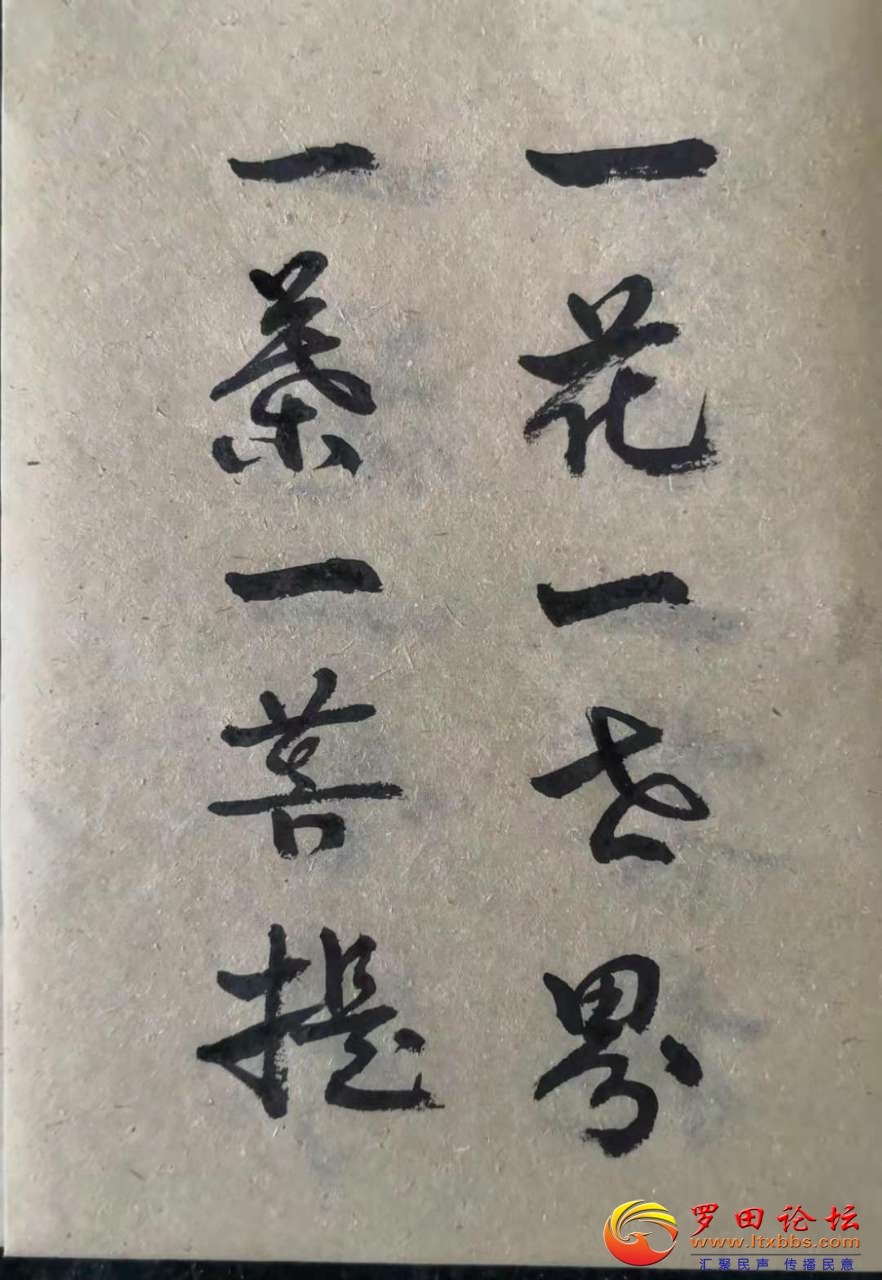 一花一世界
一葉一菩提
罗田论坛
www.ltxbbs.com
汇聚民声 传播民意